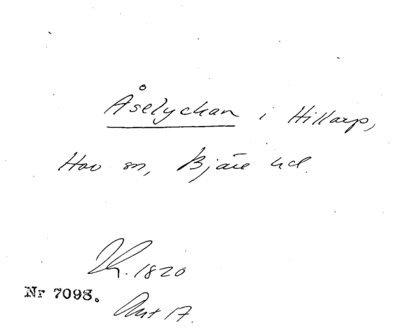 Åselyckan i Hillarp,
Hov sn, Bjäre hd.
Kh. 1820
Nr 7098.
Ant 17.